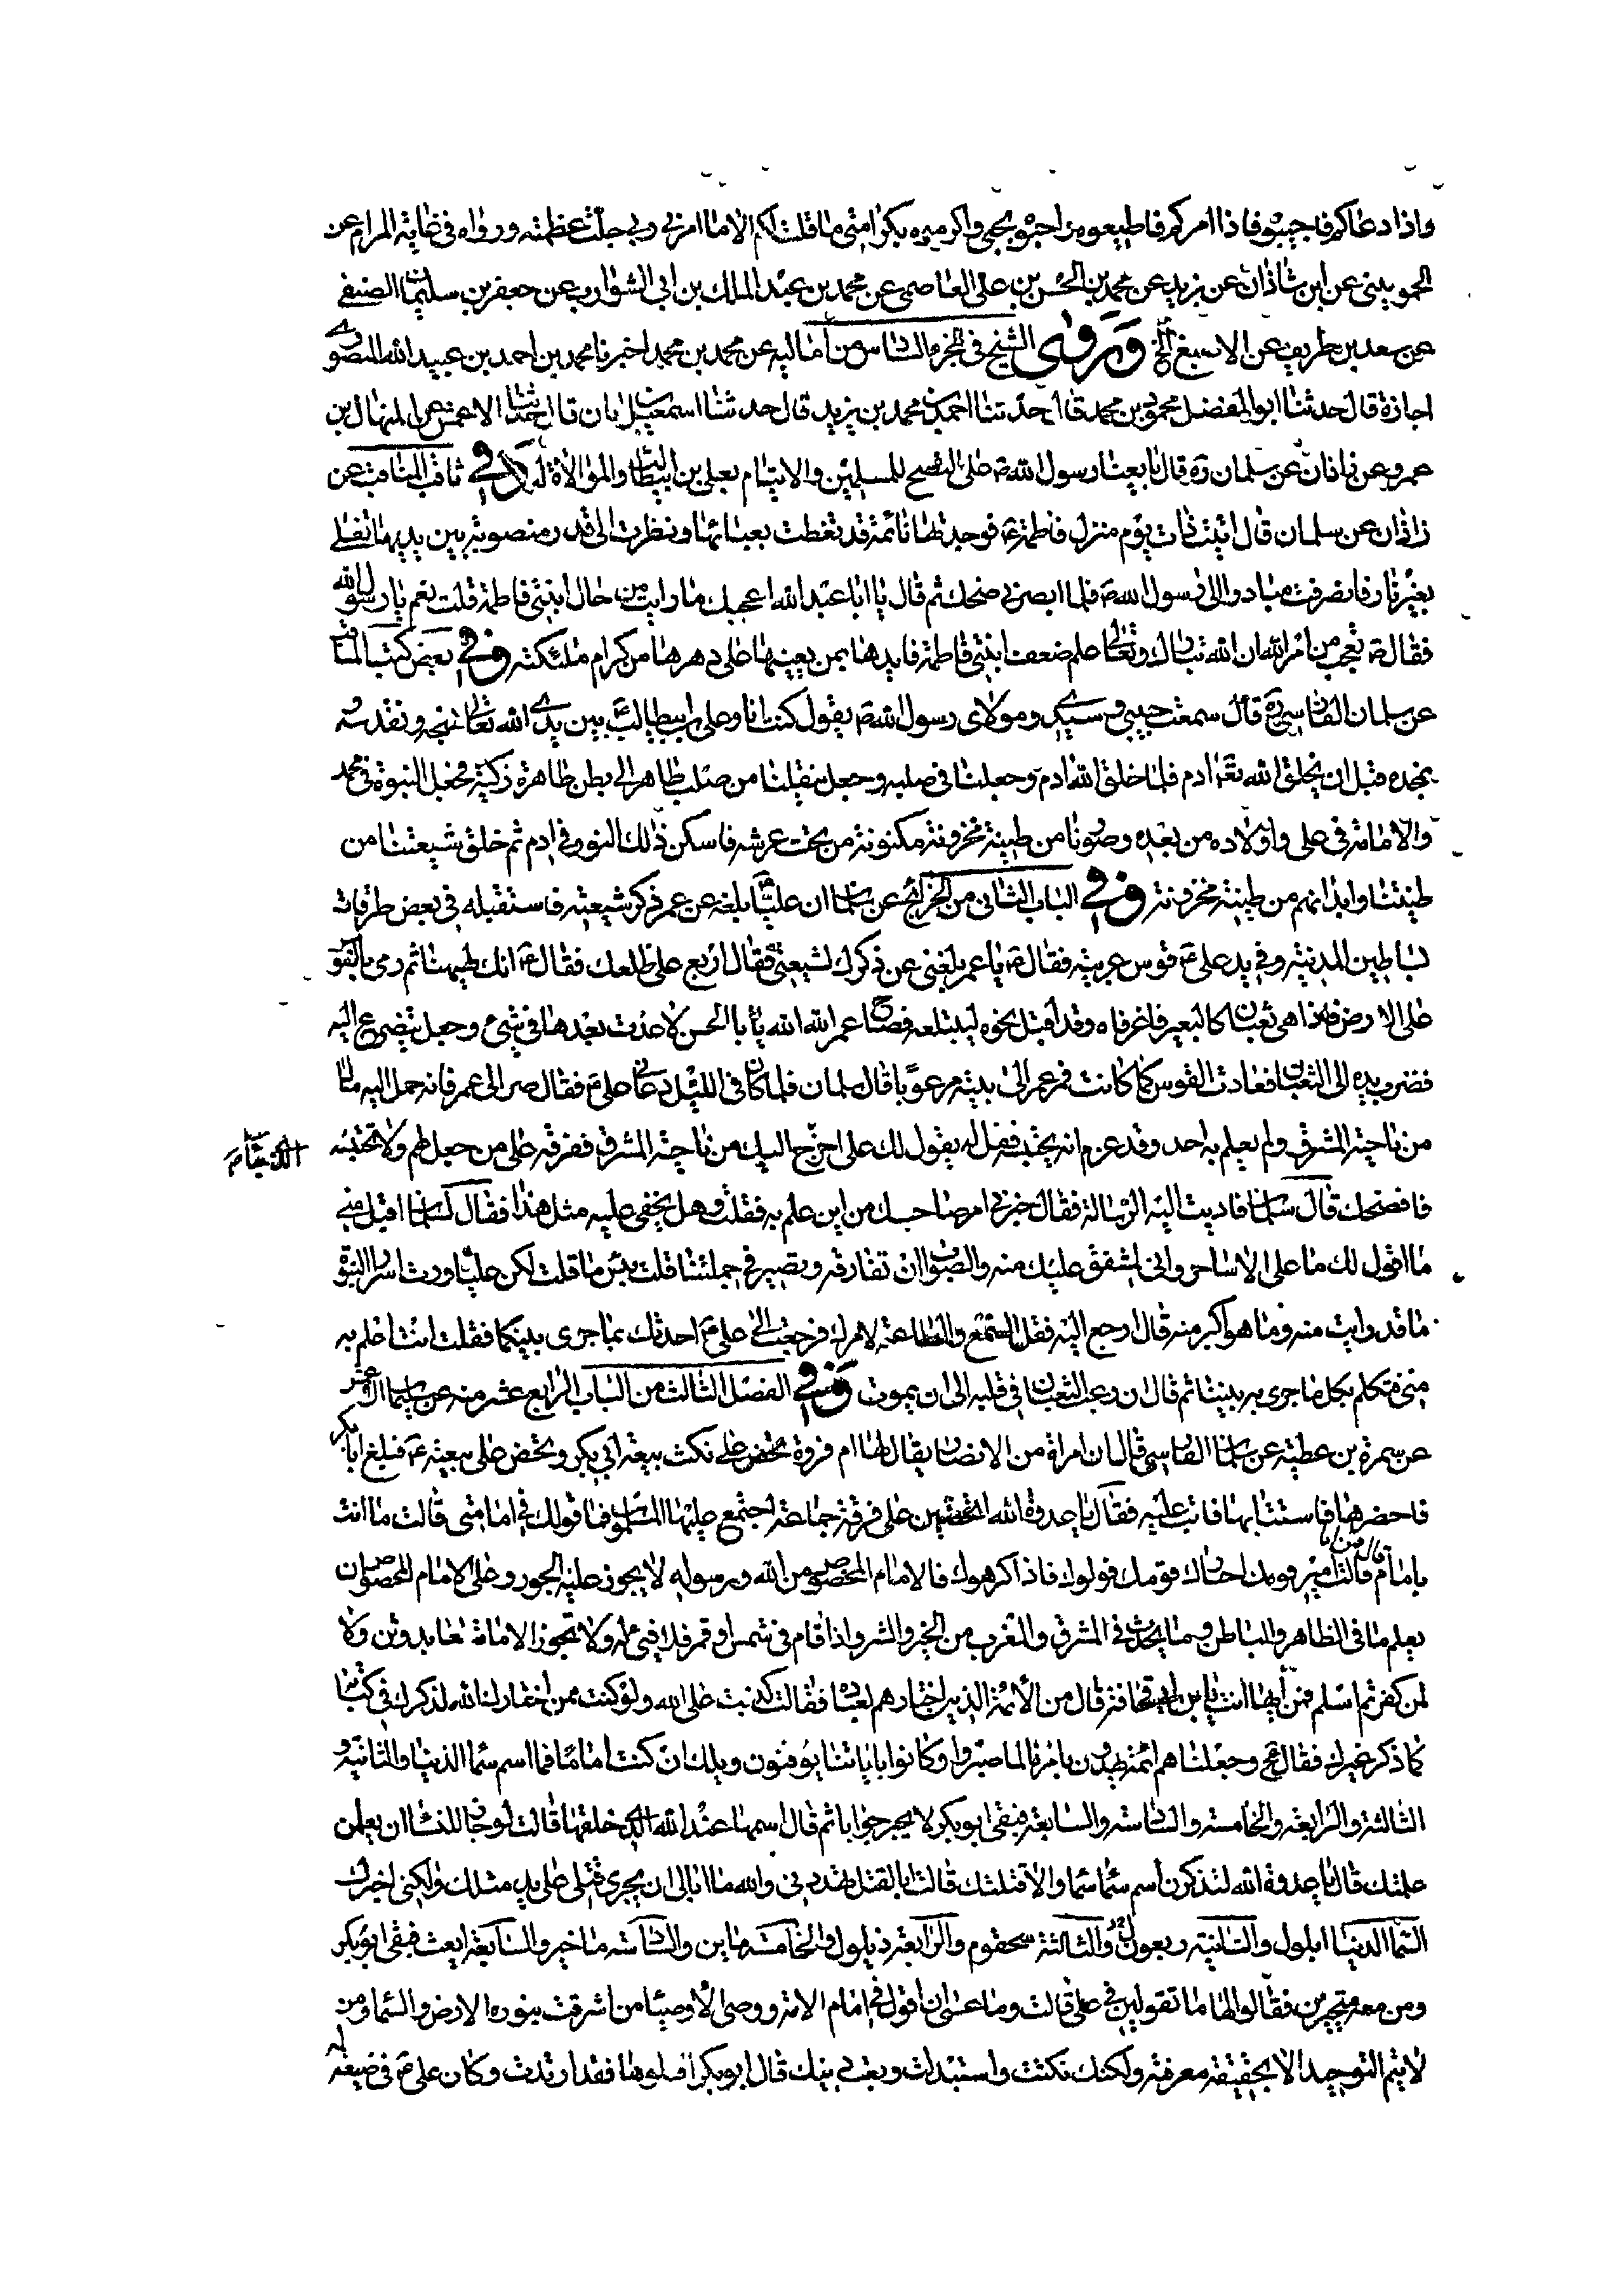 واذا دعاكم فاجيبوه فاذا امركم فاطيعوه من احبه بحبي واكرموه بكرامتي ما قلت لكم الا ما امرني ربي جلت عظمته ورواه في غاية المرام عن
الحمويني عن ابن شاذان عن يزيد عن محمد بن الحسن بن علي العاصمي عن محمد بن عبد الملك بن ابي الشوارب عن جعفر بن سليمان الضبعي
عن سعد بن طريف عن الاصبغ الخ وروى الشيخ في الجزء السادس من اماليه عن محمد بن محمد اخبرنا محمد بن احمد بن عبيد الله المنصوري
اجازة قال حدثنا ابو المفضل محمود بن محمد قال حدثنا احمد بن محمد بن يزيد قال حدثنا اسمعيل بن ابان قال حدثنا الاعمش عن المنهال بن
عمرو عن زاذان عن سلمان ره قال بايعنا رسول الله ص على النصح للمسلمين والايتمام بعلي بن ابيطالب والموالاة له وفي ثاقب المناقب عن
زاذان عن سلمان قال اتيت ذات يوم منزل فاطمة ع فوجدتها نائمة قد تغطت بعبائها ونظرت الى قدر منصوبة بين يديها تغلي
بغير نار فانصرفت مبادرا الى رسول الله ص فلما ابصرني ضحك ثم قال يا ابا عبد الله اعجبك ما رايت من حال ابنتي فاطمة قلت نعم يا رسول الله
فقال ص تعجب من امر الله ان الله تبارك وتعالى علم ضعف ابنتي فاطمة فايدها بمن يعينها على دهرها من كرام ملئكته وفي بعض كتب المناقب
عن سلمان الفارسي ره قال سمعت حبيبي وسيدي ومولاي رسول الله ص يقول كنت انا وعلي بن ابيطالب ع بين يدي الله تعالى نسبحه ونقدسه و
نمجده قبل ان يخلق الله تعالى ادم فلما خلق الله ادم وجعلنا في صلبه وجعل ينقلنا من صلب طاهر الى بطن طاهرة زكية فجعل النبوة في محمد
والامامة في علي واولاده من بعده وصورنا من طينة مخزونة مكنونة من تحت عرشه فاسكن ذلك النور في ادم ثم خلق شيعتنا من
طينتنا وابدانهم من طينة مخزونة وفي الباب الثاني من الخرائج عن سلمان ان عليا ع بلغه عن عمر ذكر شيعته فاستقبله في بعض طرقات
بساطين المدينة وفي يد علي ع قوس عربية فقال ع يا عمر بلغني عن ذكرك لشيعتي فقال اربع على ظلعك فقال ع انك لهيهنا ثم رمى بالقوس
على الارض فاذا هي ثعبان كالبعير فاغر فاه وقد اقبل نحوه ليبتلعه فصاح عمر الله الله يا ابا الحسن لا عدت بعدها في شيء وجعل يتضرع اليه
فضرب يده الى الثعبان فعادت القوس كما كانت فمر عمر الى بيته مرعوبا قال سلمان فلما كان في الليل دعاني علي ع فقال صر الى عمر فانه حمل اليه مال
من ناحية المشرق ولم يعلم به احد وقد عزم انه يحتبسه فقل له يقول لك علي اخرج اليك من ناحية المشرق ففرقه على من جعل لهم ولا تحبسه
فافضحك قال سلمان فاديت اليه الرسالة فقال خبرني امر صاحبك من اين علم به فقلت وهل يخفى عليه مثل هذا فقال لسلمان اقبل مني
ما اقول لك ما علي الا ساحر واني لمشفق عليك منه والصواب ان تفارقه وتصير في جملتنا قلت بئس ما قلت لكن عليا ورث اسرار النبوة
ما قد رايت منه وما هو اكبر منه قال ارجع اليه فقل السمع والطاعة لامرك فرجعت الى علي ع احدثك بما جرى بينكما فقلت انت اعلم به
مني فتكلم بكل ما جرى به بيننا ثم قال ان رعب الثعبان في قلبه الى ان يموت وفي الفصل الثالث من الباب الرابع عشر منه عن سليمان الاعمش
عن سمرة بن عطية عن سلمان الفارسي قال ان امراة من الانصار يقال لها ام فروة تحض على نكث بيعة ابي بكر وتحض على بيعة ع فبلغ ابا بكر
فاحضرها فاستتابها فابت عليه فقال يا عدوة الله اتحضين على فرقة جماعة اجتمع عليها المسلمون فما قولك في امامتي قالت ما انت
بامام قال فمن انا قالت امير قومك اختارك قومك فولوك فاذا كرهوك فالامام المخصوص من الله ورسوله لا يجوز عليه الجور وعلى الامام المخصوص ان
يعلم ما في الظاهر والباطن وما يحدث في المشرق والمغرب من الخير والشر واذا قام في شمس او قمر فلا فيء له ولا تجوز الامامة لعابد وثن ولا
لمن كفر ثم اسلم فمن ايهما انت يا بن ابي قحافة قال من الائمة الذين اختارهم لعباده فقالت كذبت على الله ولو كنت ممن اختارك الله لذكرك في كتابه
كما ذكر غيرك فقال عج وجعلنا هم ائمة يهدون بامرنا لما صبروا وكانوا باياتنا يوقنون ويلك ان كنت اماما فما اسم سماء الدنيا والثانية و
الثالثة والرابعة والخامسة والسادسة والسابعة فبقى ابو بكر لا يحير جوابا ثم قال اسمها عند الله الذي خلقها قالت لو جاز للنساء ان يعلمن
علمتك قال يا عدوة الله لتذكرن اسم سماء سماء والا قتلتك قالت ابالقتل تهددني والله ما ابالي ان يجري قتلي على يد مثلك ولكني اخبرك
السماء الدنيا ايلول والثانية ربعول والثالثة سحقوم والرابعة ذيلول والخامسة ماين والسادسة ماخير والسابعة ايعث فبقى ابو بكر
ومن معه متحيرين فقالوا لها ما تقولين في علي قالت وما عسى ان اقول في امام الائمة ووصي الاوصياء من اشرقت بنوره الارض والسماء ومن
لا يتم التوحيد الا بحقيقة معرفته ولكنك نكثت واستبدلت وبعت دينك قال ابو بكر اقتلوها فقد ارتدت وكان علي ع في ضيعة له